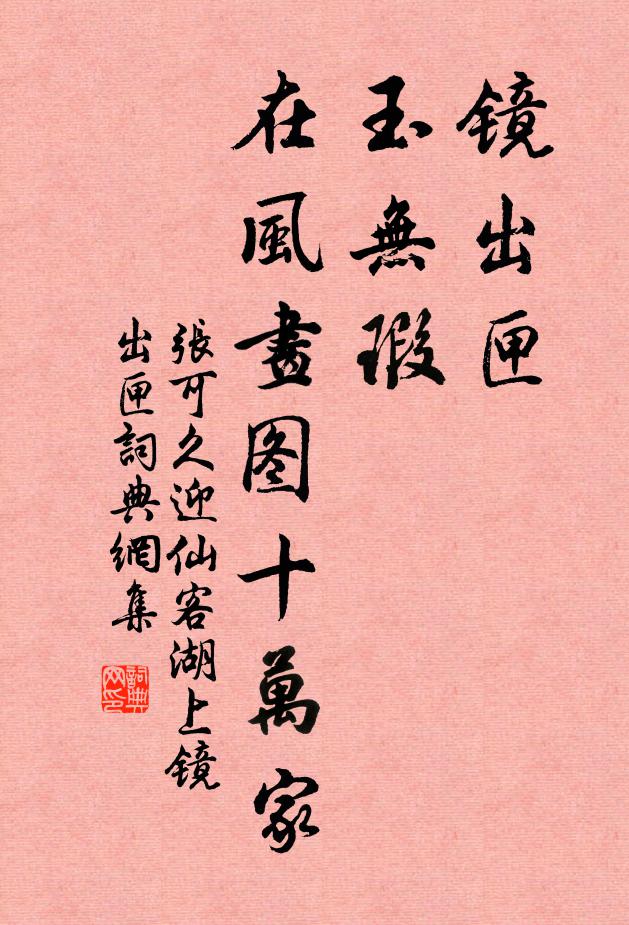 镜出匣
玉無瑕
在風畫图十萬家
張可久迎仙客湖上镜
出匣詞典網集
詞典网印